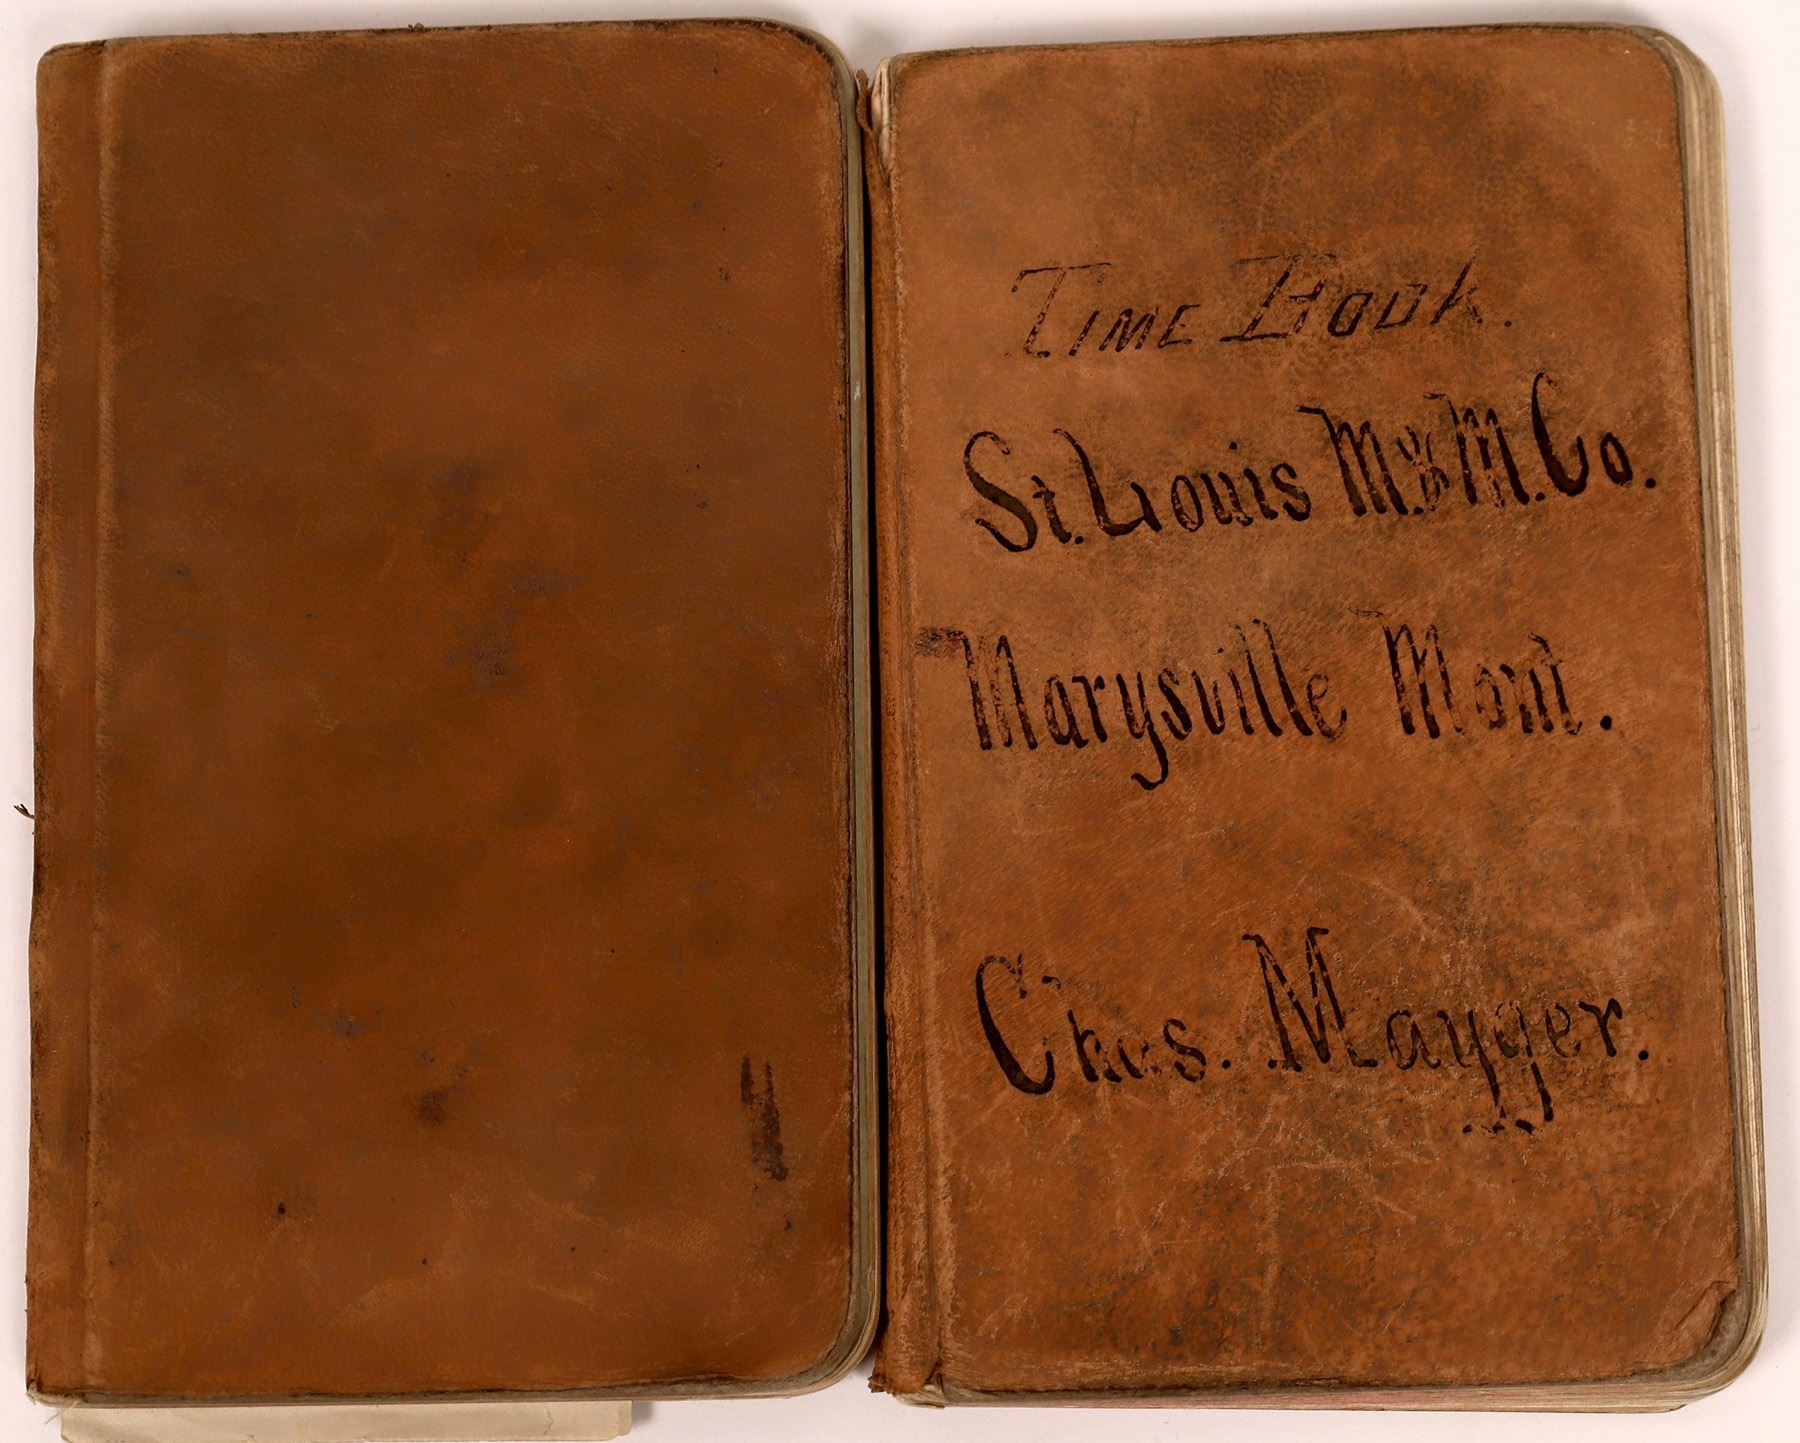 Time Book.
St. Louis M. & M. Co.
Marysville Mont.
Chas. Mayger.